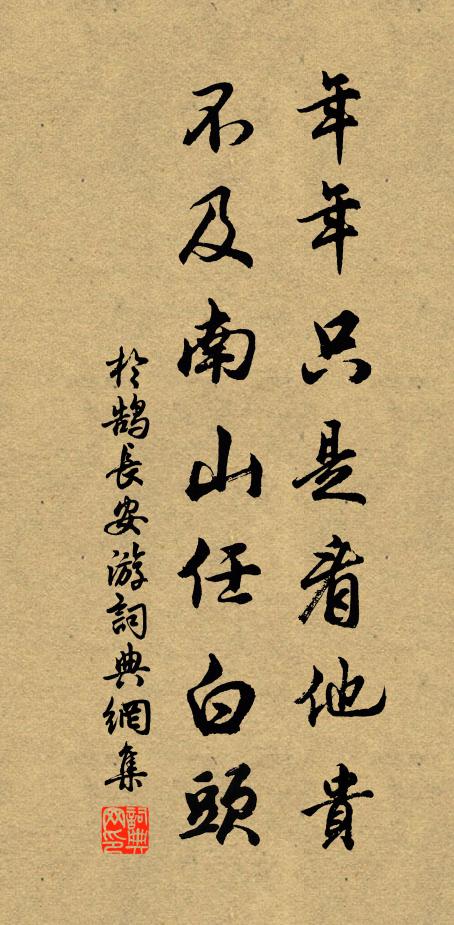 年年只是看他貴
不及南山任白頭
於鵠長安游詞典網集
詞典
网印